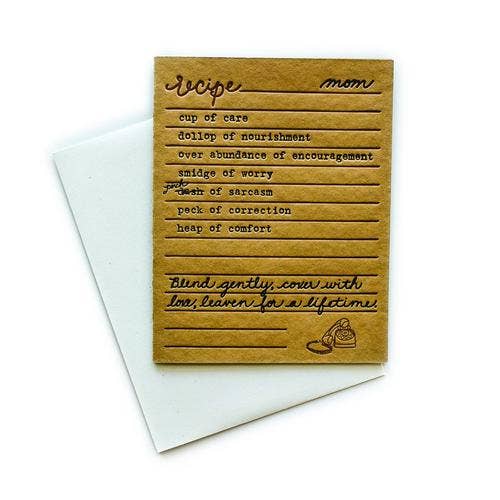 recipe mom
cup of care
dollop of nourishment
over abundance of encouragement
smidge of worry
dash of sarcasm
peck of correction
heap of comfort
Blend gently, cover with
love, leaven for a lifetime.